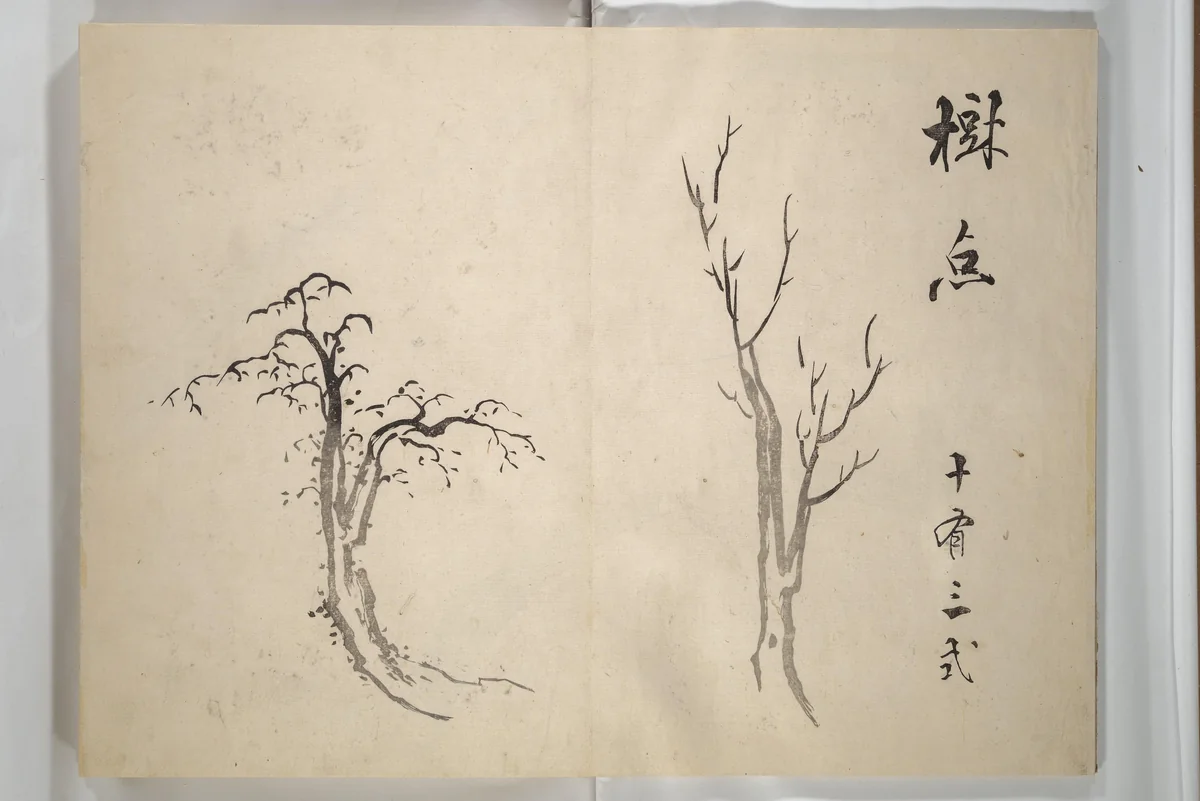 樹点
十有三式